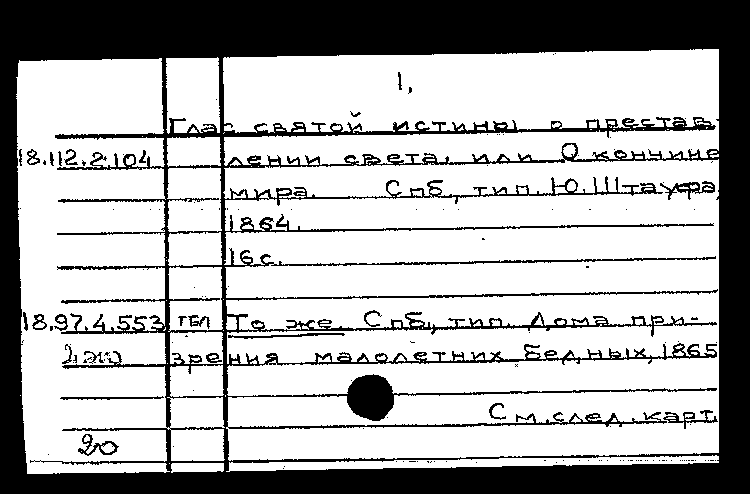 1.
Глас святой истины о престав-
18.112.2.104 лении света, или О кончине
мира. Спб, тип. Ю. Штауфа,
1864.
16 с.
18.97.4.553 ГБЛ То же. Спб., тип. Дома при-
зрения малолетних бедных, 1865
См. след. карт.
20